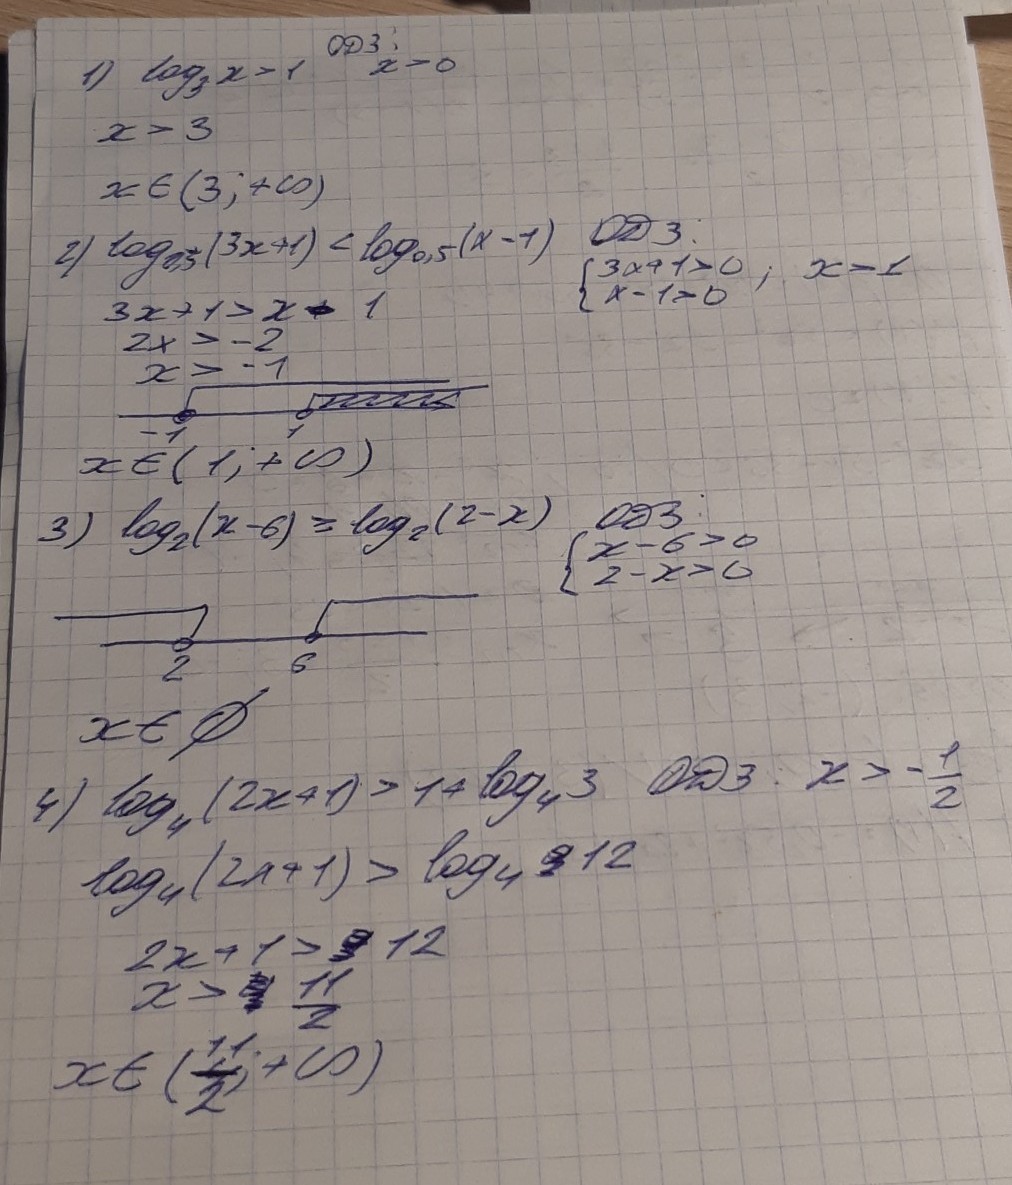 1) log₃x > 1 ОДЗ: x > 0
x > 3
x ∈ (3; +∞)
2) log₀,₅(3x+1) < log₀,₅(x-1) ОДЗ:
{3x+1>0 ; x > 1
x-1>0
3x+1 > x - 1
2x > -2
x > -1
-1 1
x ∈ (1; +∞)
3) log₂(x-6) = log₂(2-x) ОДЗ:
{x-6>0
2-x>0
2 6
x ∈ ∅
4) log₄(2x+1) > 1+log₄3 ОДЗ: x > -1/2
log₄(2x+1) > log₄ 12
2x+1 > 12
x > 11/2
x ∈ (11/2; +∞)